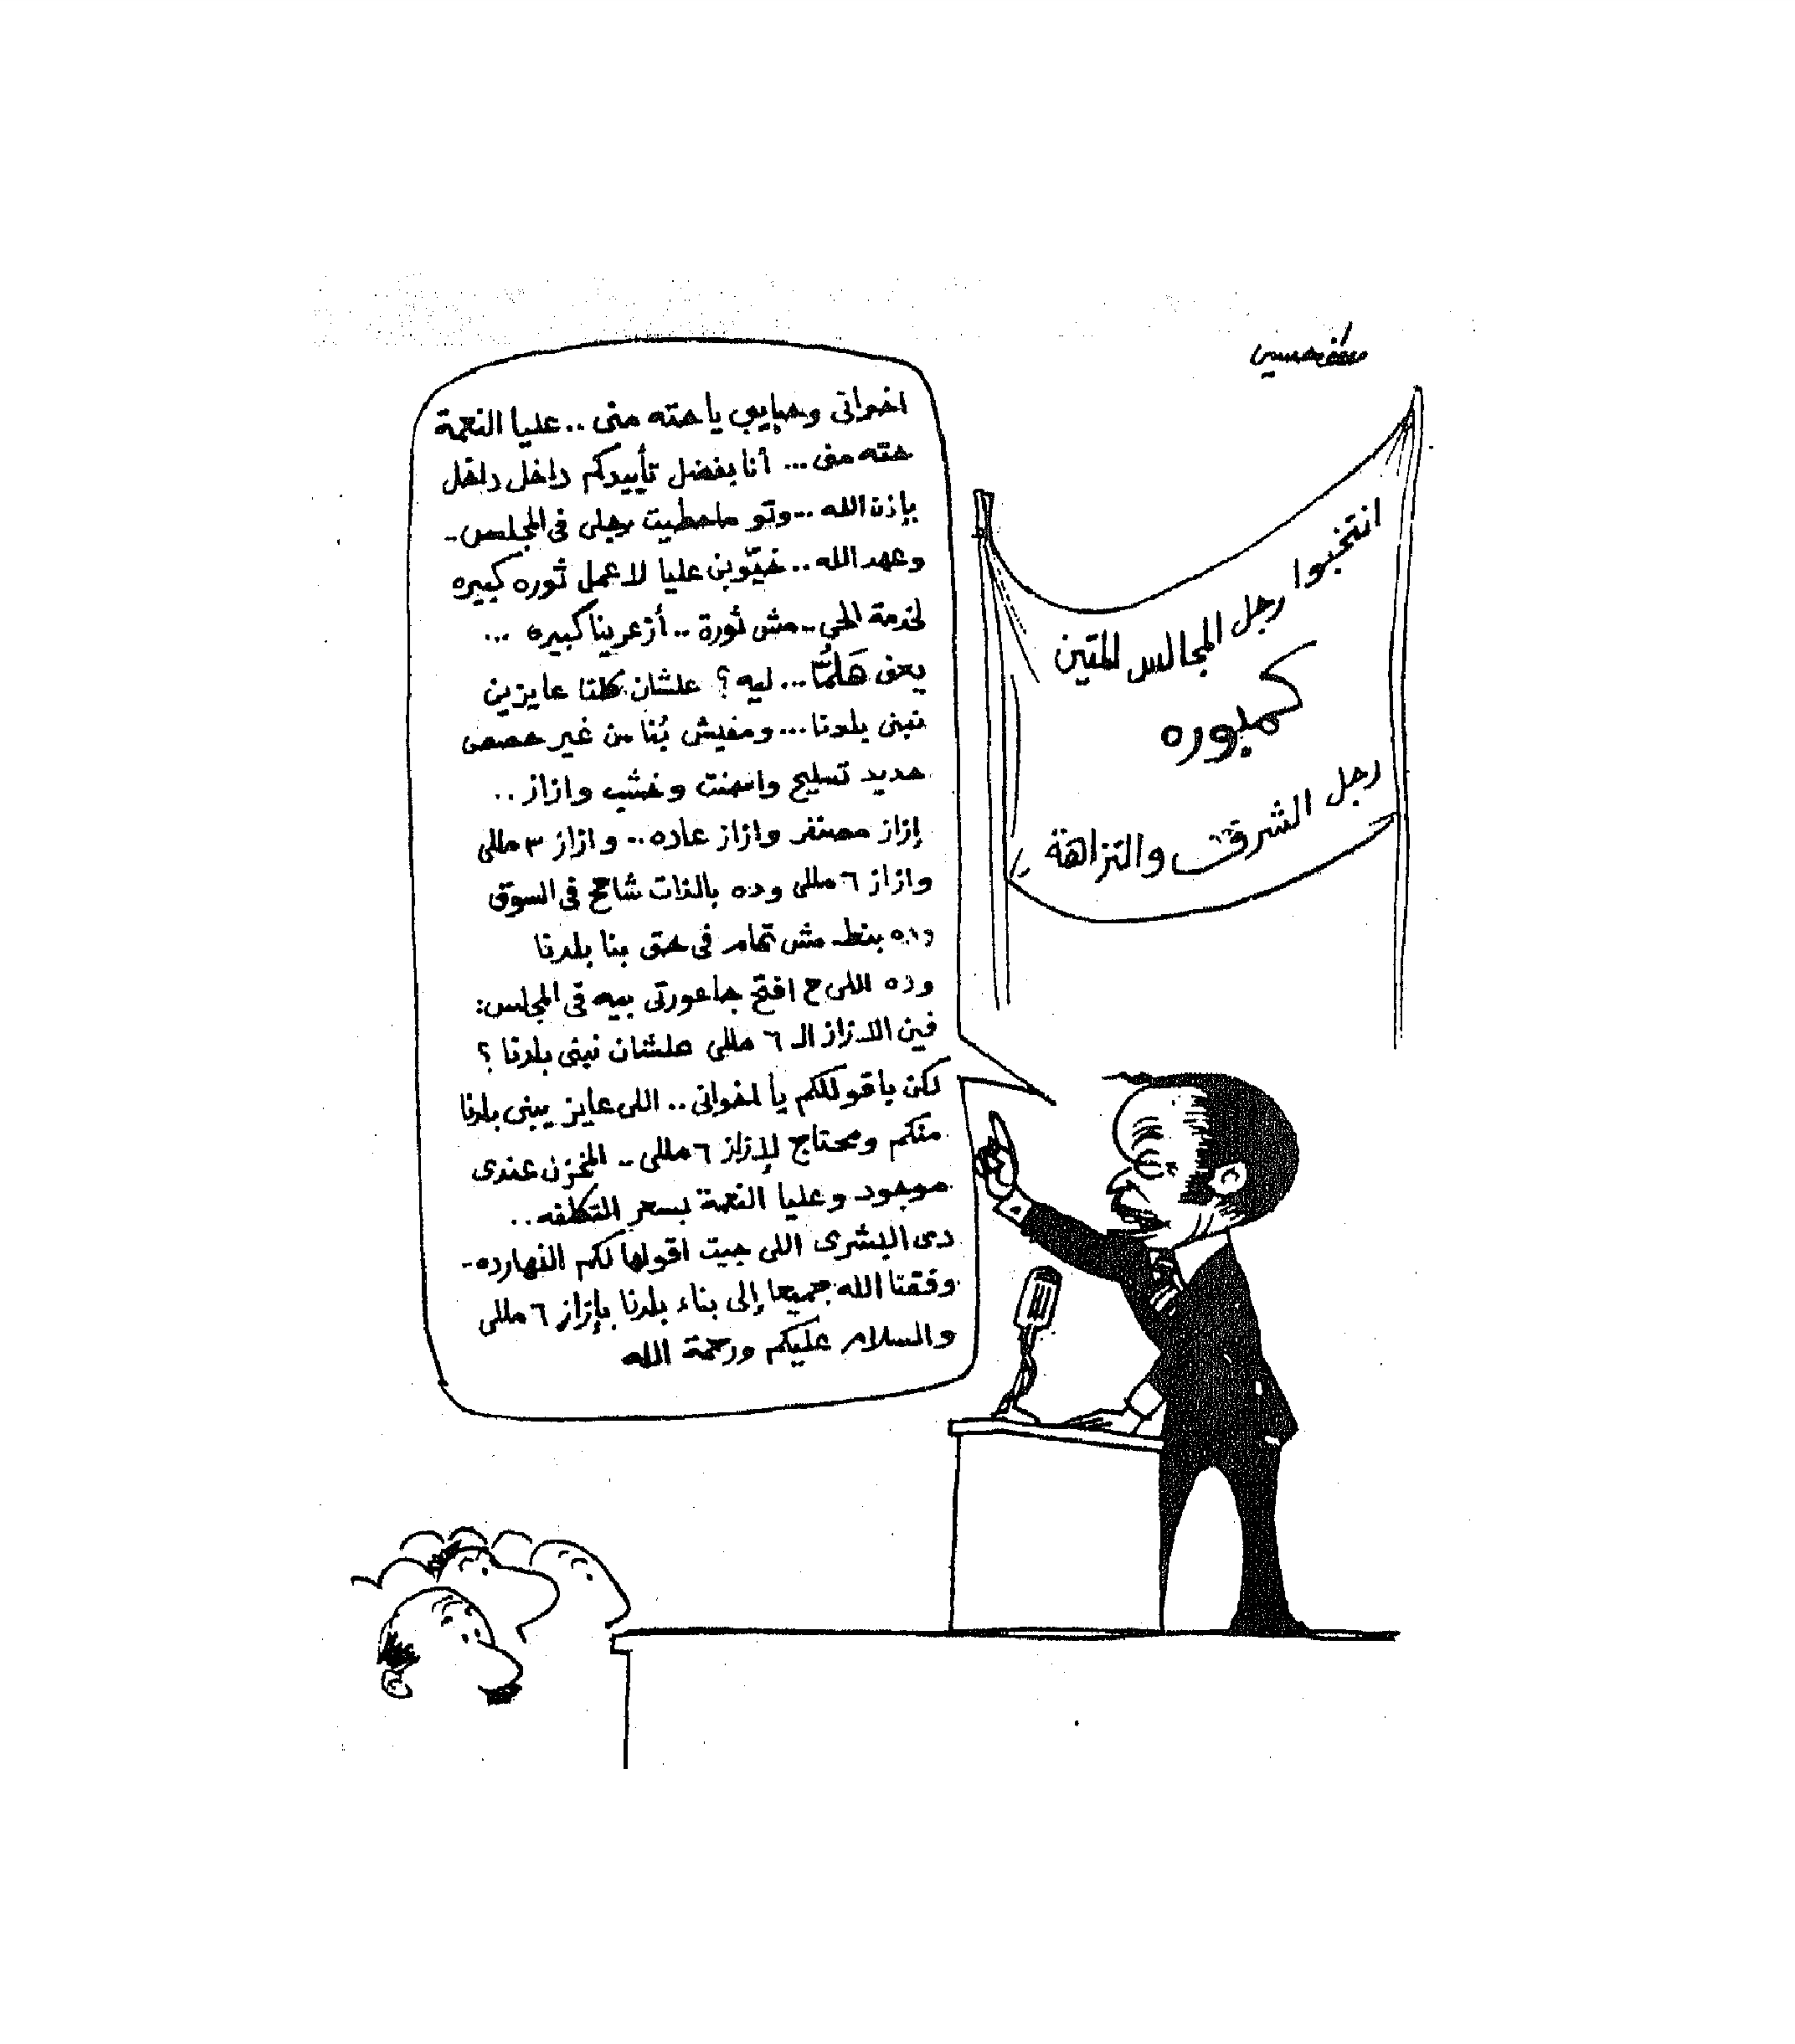 مصطفى حسين
انتخبوا رجل المجالس المتين
كمبوره
رجل الشرف والنزاهة
اخوانى وحبايبى يا حته منى .. عليا النعمة
حته منى ... أنا بفضل تأييدكم داخل داخل
بإذن الله ... وتو ماحطيت رجلى فى المجلس ..
وعهد الله .. عليا لاعمل ثوره كبيره
لخدمة الحى .. مش ثورة .. أزعرينا كبيره ...
يعنى هَلُمَّا ... ليه ؟ علشان كلنا عايزين
نبنى بلدنا ... ومفيش بُنا من غير حصص
حديد تسليح واسمنت وخشب وازاز ..
إزاز مصنفر وازاز عاده .. وازاز ٣ مللى
وازاز ٦ مللى وده بالذات شاحح فى السوق
وده بنط مش تمام فى حق بنا بلدنا
وده اللى ح افتح جاعورتى بيه فى المجلس :
فين الازاز الـ ٦ مللى علشان نبنى بلدنا ؟
لكن باقوللكم يا اخوانى .. اللى عايز يبنى بلدنا
منكم ومحتاج لإزاز ٦ مللى .. المخزن عندى
موجود وعليا النعمة بسعر التكلفه ..
دى البشرى اللى جيت اقولها لكم النهارده ..
وفقنا الله جميعا إلى بناء بلدنا بإزاز ٦ مللى
والسلام عليكم ورحمة الله